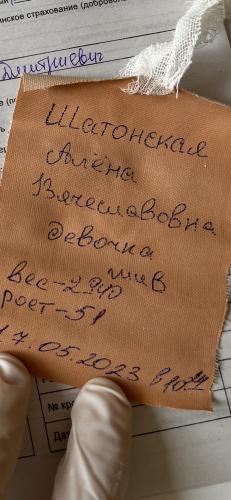 нское страхование (добровольное
Дмитриевич
Шатонская
Алёна
Вячеславовна
девочка
жив
вес-2940
рост-51
17.05.2023 в 10
№ кро
Дат